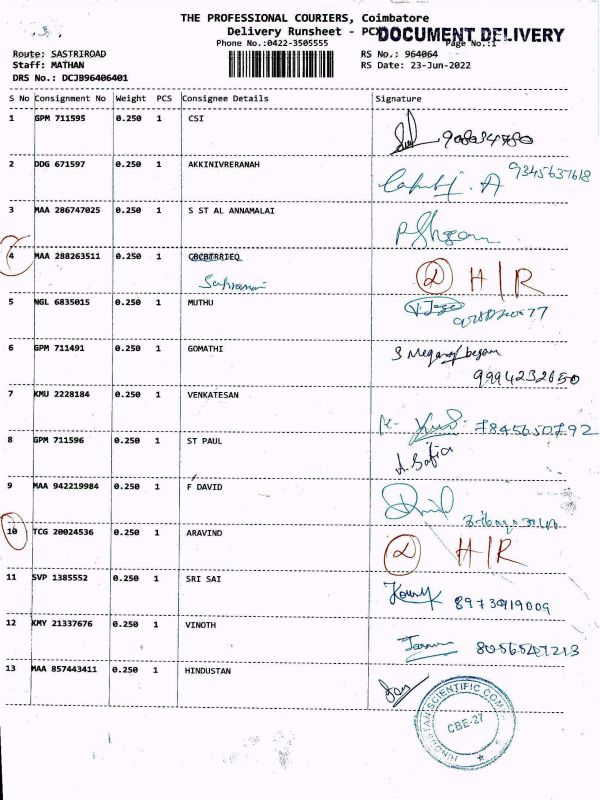 THE PROFESSIONAL COURIERS, Coimbatore
Delivery Runsheet - PCX
DOCUMENT DELIVERY
Phone No.:0422-3505555
Page No.:1
Route: SASTRIROAD
RS No.: 964064
Staff: MATHAN
RS Date: 23-Jun-2022
DRS No.: DCJB96406401
S No Consignment No Weight PCS Consignee Details Signature
1 GPM 711595 0.250 1 CSI
2 DDG 671597 0.250 1 AKKINIVRERANAH 9345637618
3 MAA 286747025 0.250 1 S ST AL ANNAMALAI
4 MAA 288263511 0.250 1 2 H/R
5 NGL 6835015 0.250 1 MUTHU
6 GPM 711491 0.250 1 GOMATHI
9994232650
7 KMU 2228184 0.250 1 VENKATESAN
7845650792
8 GPM 711596 0.250 1 ST PAUL A. Sofia
9 MAA 942219984 0.250 1 F DAVID
10 TCG 20024536 0.250 1 ARAVIND 2 H/R
11 SVP 1385552 0.250 1 SRI SAI 8973919009
12 KMY 21337676 0.250 1 VINOTH
8056547213
13 MAA 857443411 0.250 1 HINDUSTAN
HINDUSTAN SCIENTIFIC
CBE-27